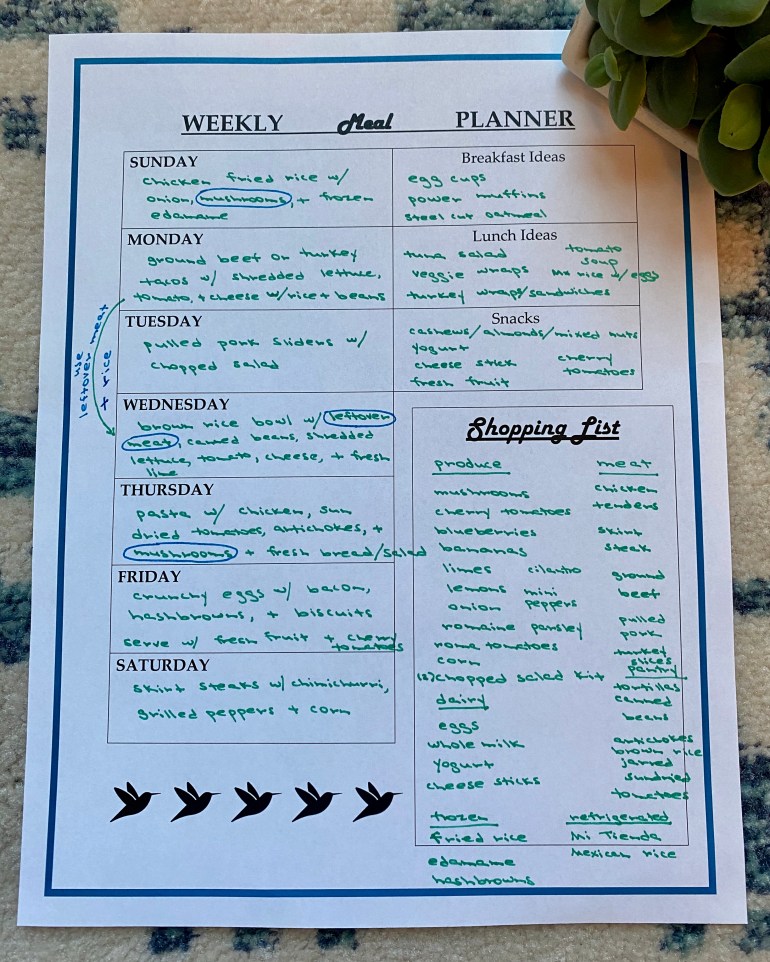 WEEKLY Meal PLANNER
SUNDAY
chicken fried rice w/
onion, mushrooms, + frozen
edamame
MONDAY
ground beef or turkey
tacos w/ shredded lettuce,
tomato, + cheese w/rice + beans
use
leftover meat
+ rice
TUESDAY
pulled pork sliders w/
chopped salad
WEDNESDAY
brown rice bowl w/ leftover
meat, canned beans, shredded
lettuce, tomato, cheese, + fresh
lime
THURSDAY
pasta w/ chicken, sun
dried tomatoes, artichokes, +
mushrooms + fresh bread/salad
FRIDAY
crunchy eggs w/ bacon,
hashbrowns, + biscuits
serve w/ fresh fruit + cherry
tomatoes
SATURDAY
skirt steaks w/ chimichurri,
grilled peppers + corn
Breakfast Ideas
egg cups
power muffins
steel cut oatmeal
Lunch Ideas
tuna salad
veggie wraps
turkey wraps/sandwiches
tomato
soup
Mx rice w/ eggs
Snacks
cashews/almonds/mixed nuts
yogurt
cheese stick
fresh fruit
cherry
tomatoes
Shopping List
produce
mushrooms
cherry tomatoes
blueberries
bananas
limes cilantro
lemons mini
onion peppers
romaine parsley
roma tomatoes
corn
(2) chopped salad kit
dairy
eggs
whole milk
yogurt
cheese sticks
frozen
fried rice
edamame
hashbrowns
meat
chicken
tenders
skirt
steak
ground
beef
pulled
pork
turkey
slices
pantry
tortillas
canned
beans
artichokes
brown rice
jarred
sundried
tomatoes
refrigerated
Mi Tienda
Mexican rice